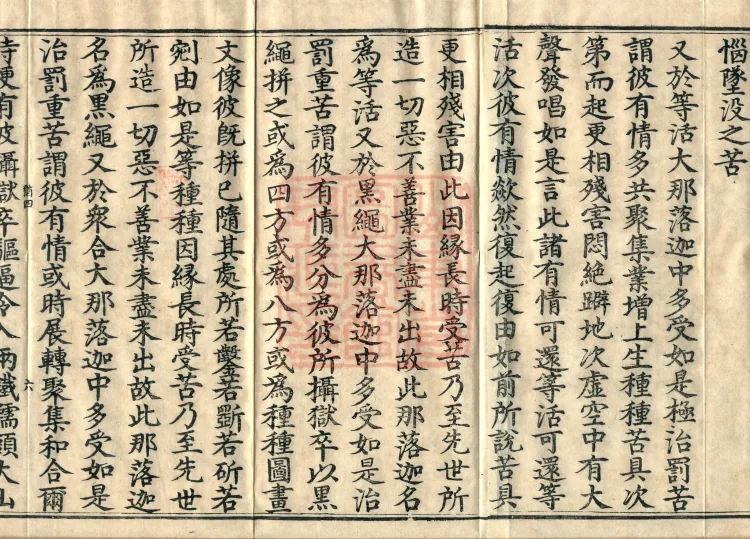 惱墜没之苦
又於等活大那落迦中多受如是極治罰苦
謂彼有情多共聚集業增上生種種苦具次
第而起更相殘害悶絕躃地次虛空中有大
聲發唱如是言此諸有情可還等活可還等
活次彼有情歘然復起復由如前所說苦具
更相殘害由此因緣長時受苦乃至先世所
造一切惡不善業未盡未出故此那落迦名
爲等活又於黑繩大那落迦中多受如是治
罰重苦謂彼有情多分爲彼所攝獄卒以黑
繩拼之或爲四方或爲八方或爲種種圖畫
文像彼旣拼已隨其處所若鑿若斵若斫若
剜由如是等種種因緣長時受苦乃至先世
所造一切惡不善業未盡未出故此那落迦
名爲黑繩又於衆合大那落迦中多受如是
治罰重苦謂彼有情或時展轉聚集和合爾
六
時便有彼攝獄卒驅逼令入兩鐵羺頭大山